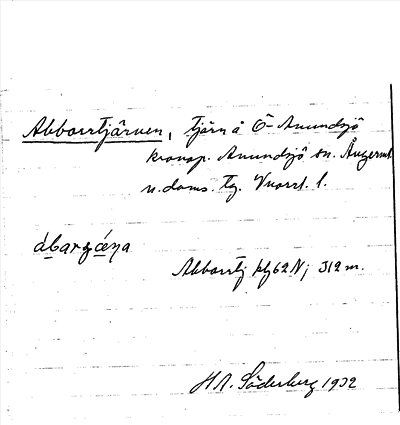 Abborrtjärnen, tjärn å Ö-Anundsjö
kronop. Anundsjö sn. Ångerml.
n. doms. tg. Vnorrl. l.
Abborrtj kbl 62 N; 312 m.
H.A. Söderberg 1932